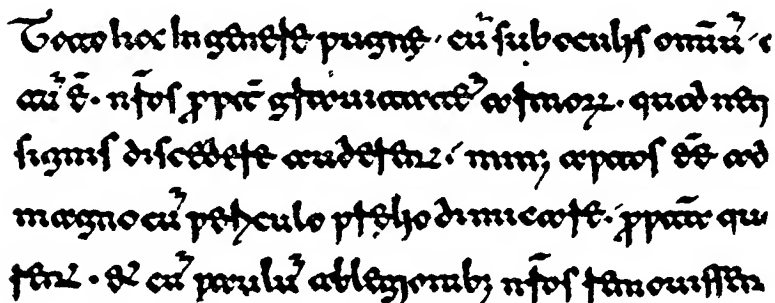 Toto hoc In genere pugnę · cū sub oculis omniū · c
tū ē · nr̄os ꝓpt̄ grauitatē armoꝝ · quod neq
signis discedere auderent · min; aptos ēē ad
magno cū periculo prelio dimicare · ꝓpt̄a qu
rent · & cū paulū ablegionib; nr̄os remouissen